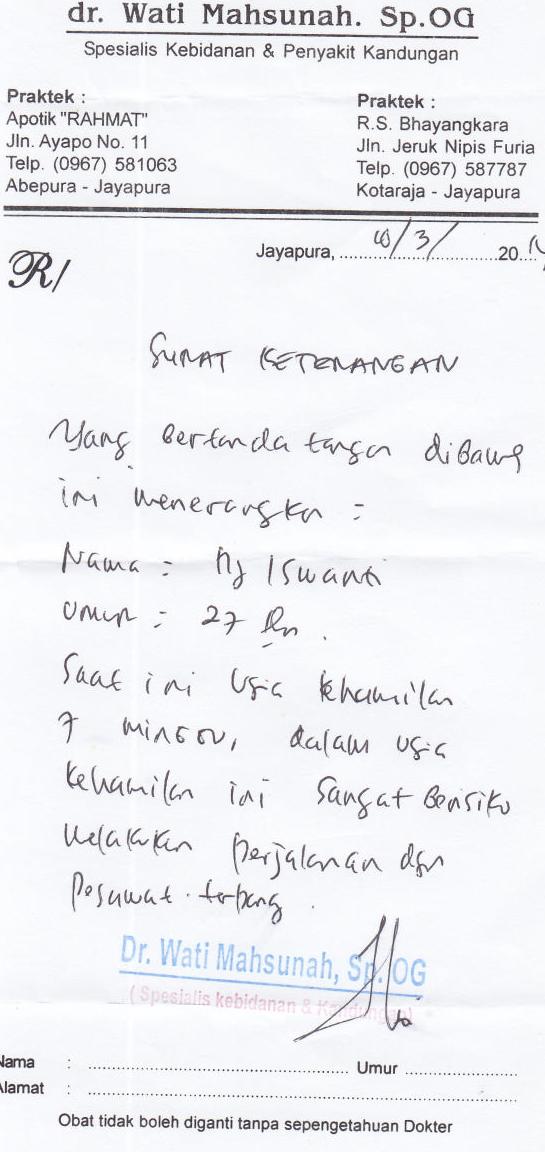 dr. Wati Mahsunah. Sp.OG
Spesialis Kebidanan & Penyakit Kandungan
Praktek :
Apotik "RAHMAT"
Jln. Ayapo No. 11
Telp. (0967) 581063
Abepura - Jayapura
Praktek :
R.S. Bhayangkara
Jln. Jeruk Nipis Furia
Telp. (0967) 587787
Kotaraja - Jayapura
Jayapura, 10/3/ 2014
R/
SURAT KETERANGAN
Yang bertanda tangan dibawah
ini menerangkan :
Nama : Ny Iswanti
Umur : 27 thn.
Saat ini usia kehamilan
7 minggu, dalam usia
kehamilan ini sangat berisiko
melakukan perjalanan dgn
pesawat terbang.
Dr. Wati Mahsunah, Sp. OG
(Spesialis kebidanan & Kandungan)
Nama : Umur
Alamat :
Obat tidak boleh diganti tanpa sepengetahuan Dokter